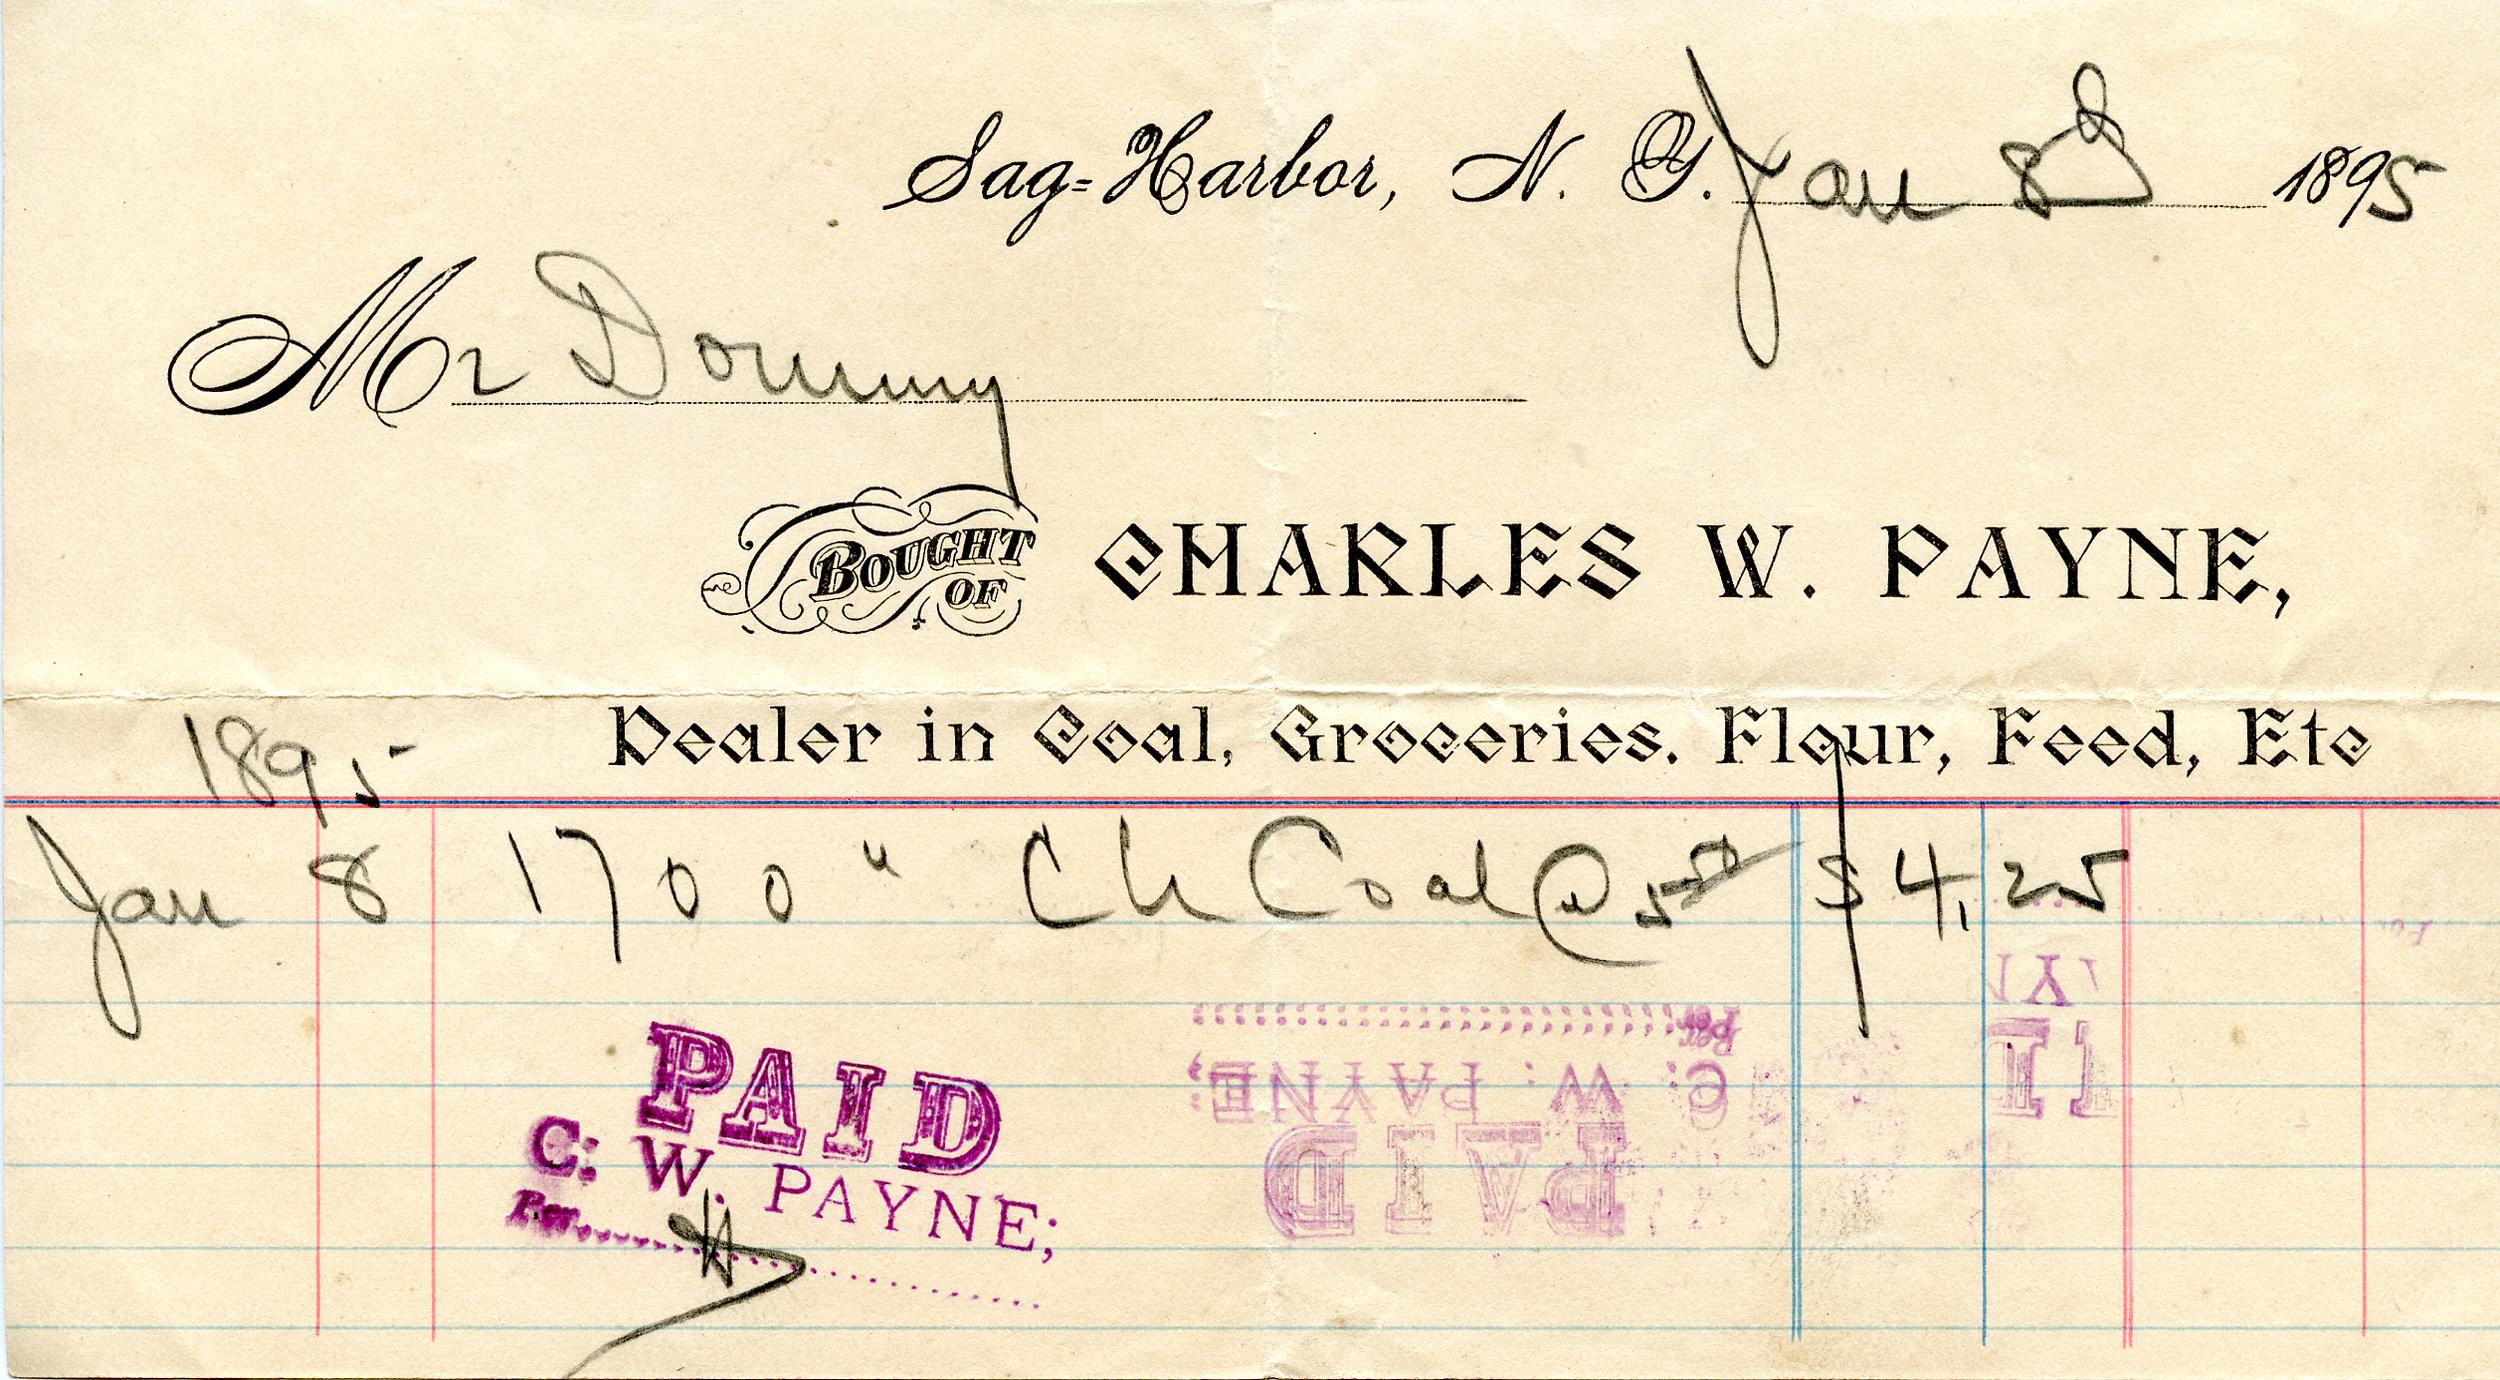 Sag=Harbor, N. Y. Jan 8 1895
Mr Dominy
BOUGHT OF CHARLES W. PAYNE,
1895 Dealer in Coal, Groceries. Flour, Feed, Etc
Jan 8 1700 " Ch Coal @ 5 50 $4,25
PAID
C. W. PAYNE;
Per
Per
C. W. PAYNE;
PAID